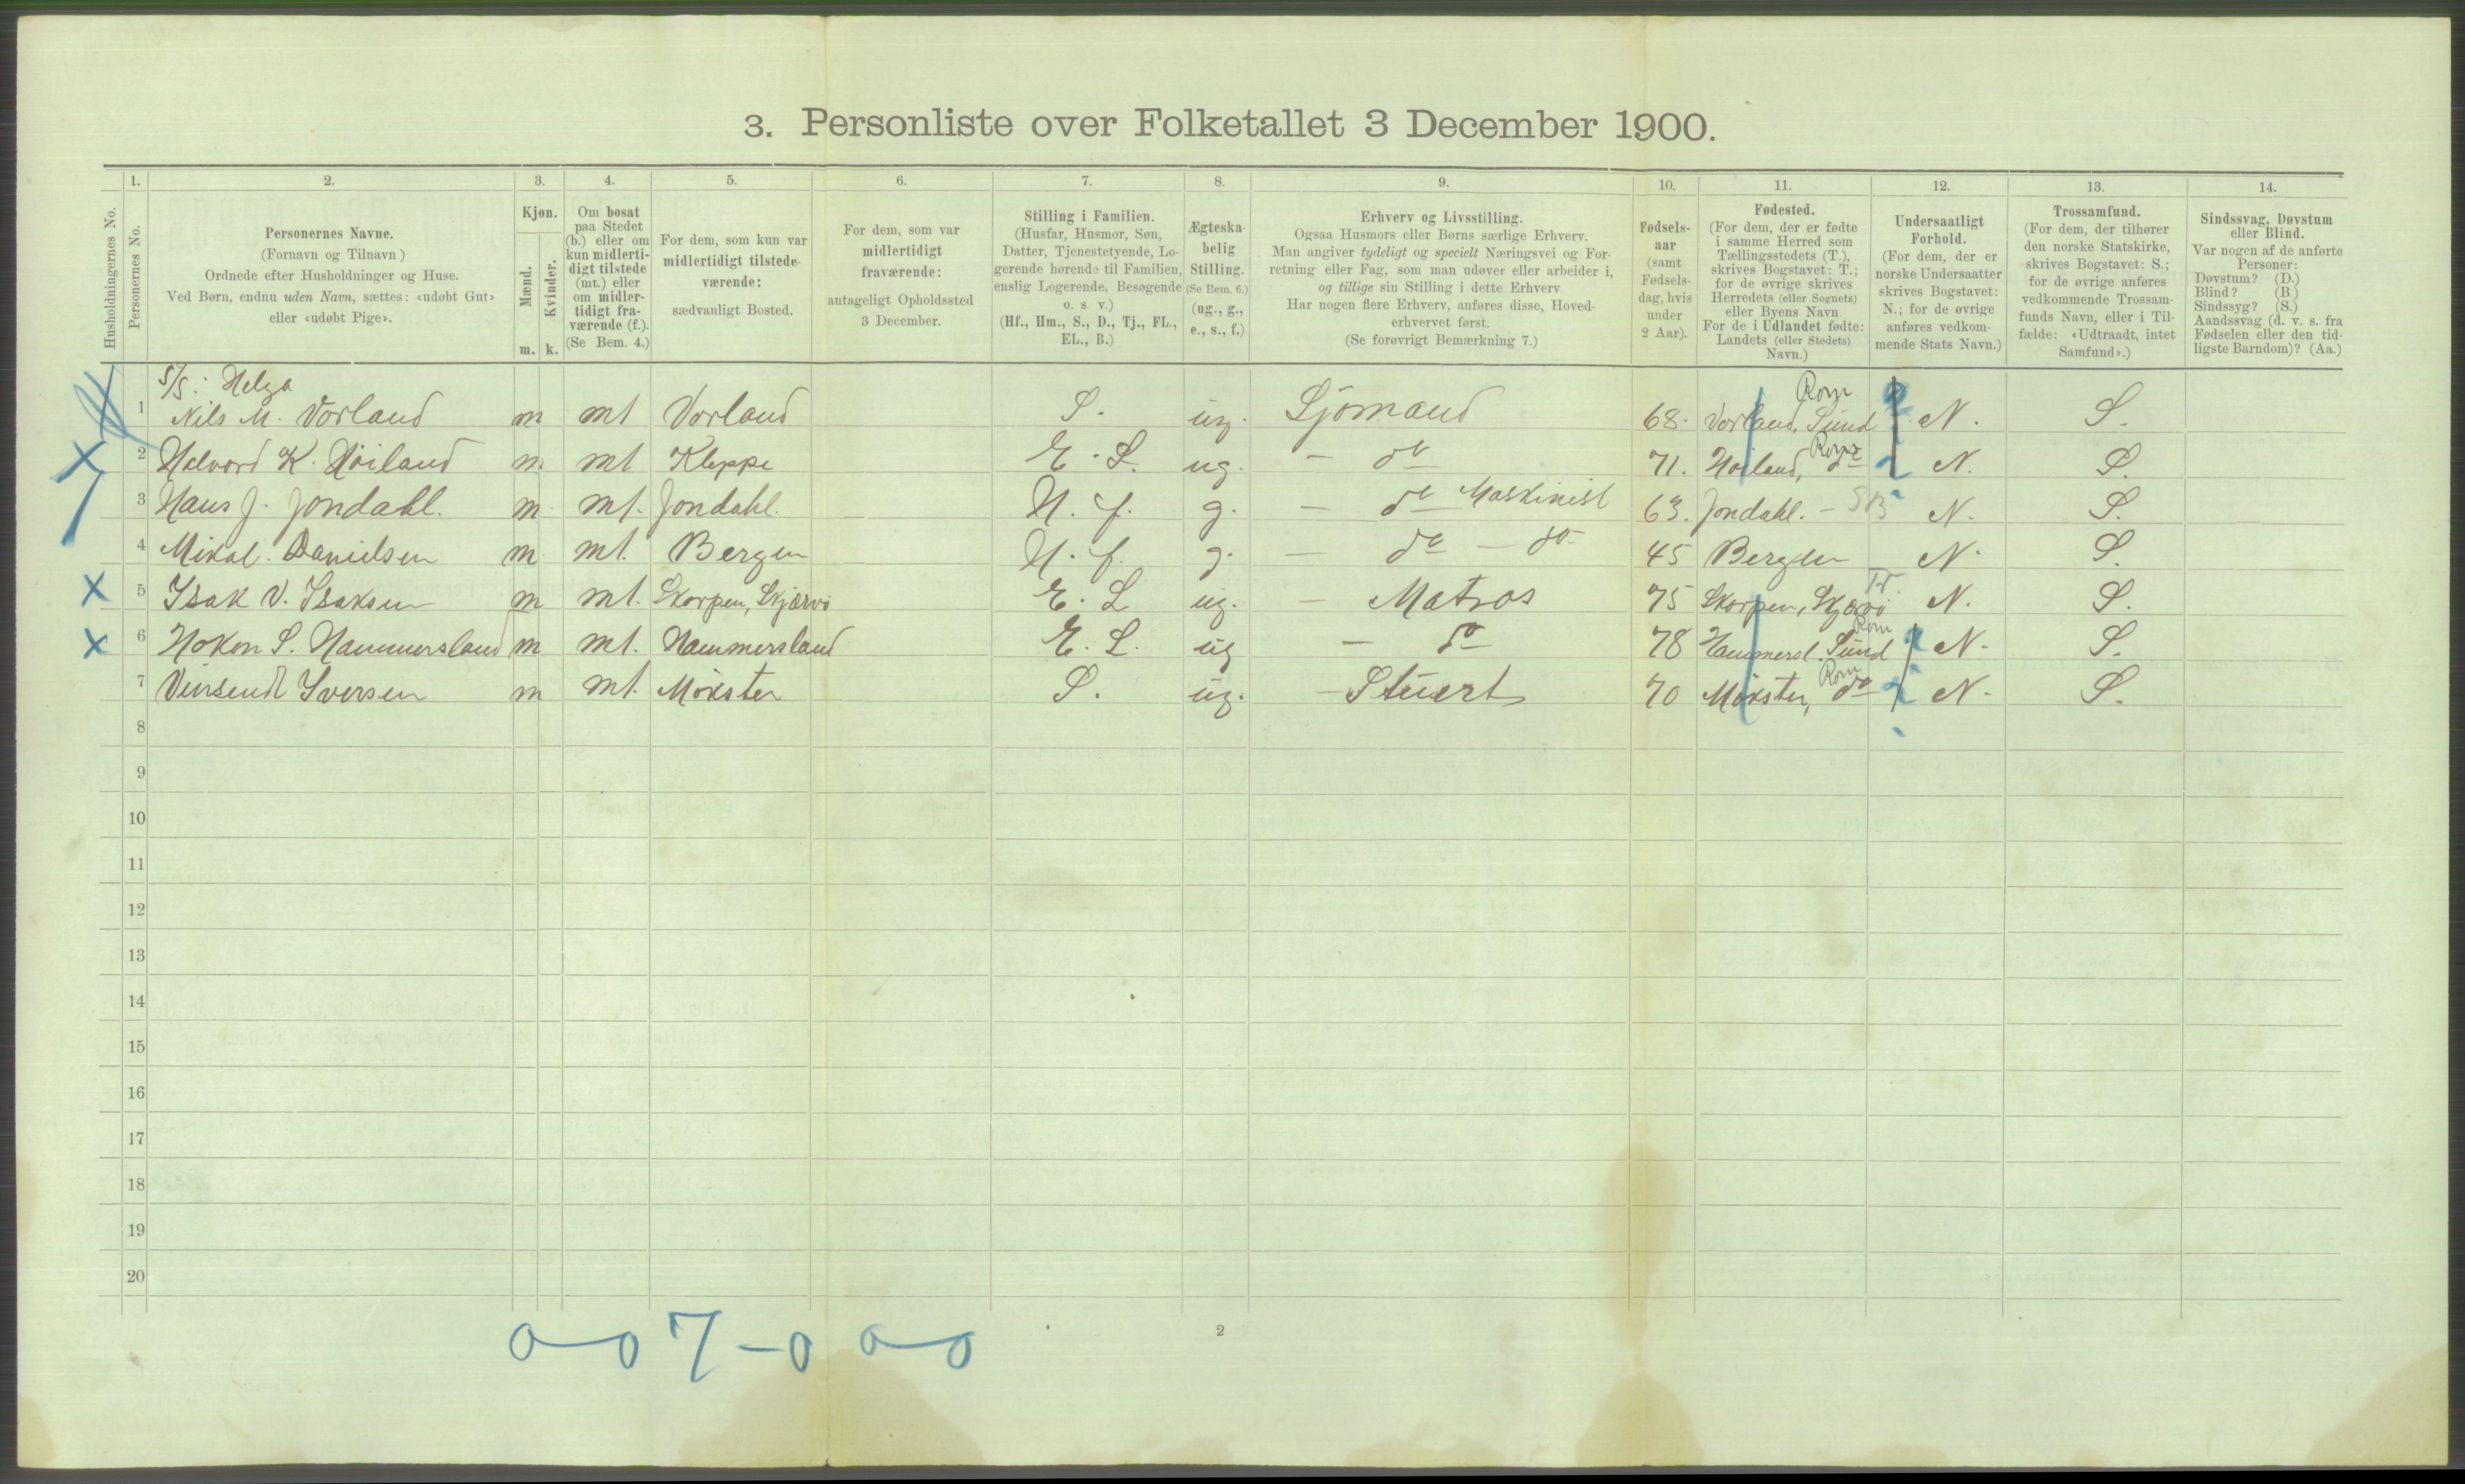 3. Personliste over Folketallet 3 December 1900.
1. 2. 3. 4. 5. 6. 7. 8. 9. 10. 11. 12. 13. 14.
Husholdningernes No.
Personernes No.
Personernes Navne.
(Fornavn og Tilnavn)
Ordnede efter Husholdninger og Huse.
Ved Børn, endnu uden Navn, sættes: «udøbt Gut»
eller «udøbt Pige».
Kjøn.
Mænd.
Kvinder.
m. k.
Om bosat
paa Stedet
(b.) eller om
kun midlerti-
digt tilstede
(mt.) eller
om midler-
tidigt fra-
værende (f.).
(Se Bem. 4.)
For dem, som kun var
midlertidigt tilstede-
værende:
sædvanligt Bosted.
For dem, som var
midlertidigt
fraværende:
antageligt Opholdssted
3 December.
Stilling i Familien.
(Husfar, Husmor, Søn,
Datter, Tjenestetyende, Lo-
gerende hørende til Familien,
enslig Logerende, Besøgende
o. s v.)
(Hf., Hm., S., D., Tj., FL.,
EL., B.)
Ægteska-
belig
Stilling.
(Se Bem. 6.)
(ug., g.,
e., s., f.)
Erhverv og Livsstilling.
Ogsaa Husmors eller Børns særlige Erhverv.
Man angiver tydeligt og specielt Næringsvei og For-
retning eller Fag, som man udøver eller arbeider i,
og tillige sin Stilling i dette Erhverv.
Har nogen flere Erhverv, anføres disse, Hoved-
erhvervet først.
(Se forøvrigt Bemærkning 7.)
Fødsels-
aar
(samt
Fødsels-
dag, hvis
under
2 Aar).
Fødested.
(For dem, der er fødte
i samme Herred som
Tællingsstedets (T.),
skrives Bogstavet: T.;
for de øvrige skrives
Herredets (eller Sognets)
eller Byens Navn.
For de i Udlandet fødte:
Landets (eller Stedets)
Navn.)
Undersaatligt
Forhold.
(For dem, der er
norske Undersaatter
skrives Bogstavet:
N.; for de øvrige
anføres vedkom-
mende Stats Navn.)
Trossamfund.
(For dem, der tilhører
den norske Statskirke,
skrives Bogstavet: S.;
for de øvrige anføres
vedkommende Trossam-
funds Navn, eller i Til-
fælde: «Udtraadt, intet
Samfund».)
Sindssvag, Døvstum
eller Blind.
Var nogen af de anførte
Personer:
Døvstum? (D.)
Blind? (B.)
Sindssyg? (S.)
Aandssvag (d. v. s. fra
Fødselen eller den tid-
ligste Barndom)? (Aa.)
S/S: Helga
Rom
1 Nils M. Vorland m mt Vorland S. ug. Sjömand 68. Vorland, Sund N. S.
Rom
2 Halvord K. Höiland m. mt Kleppe E. L. ug. - do 71. Höiland, do N. S.
3 Hans J. Jondahl. m. mt. Jondahl. H. f. g. - do Maskinist 63. Jondahl. - SB N. S.
4 Mikal. Danielsen m mt. Bergen H. f. g. - do - do 45 Bergen N. S.
Tr.
5 Isak V. Isaksen m mt. Skorpen, Skjærvö E. L ug. - Matros 75 Skorpen, Skjærvö N. S.
Rom
6 Hokon S. Hammersland m mt. Hammersland E. L. ug - do 78 Hammersl. Sund N. S.
Rom
7 Vinsendt Iversen m mt. Möxster S. ug. - Stuert 70 Möxster, do N. S.
8
9
10
11
12
13
14
15
16
17
18
19
20
0-0 7-0 0-0
2